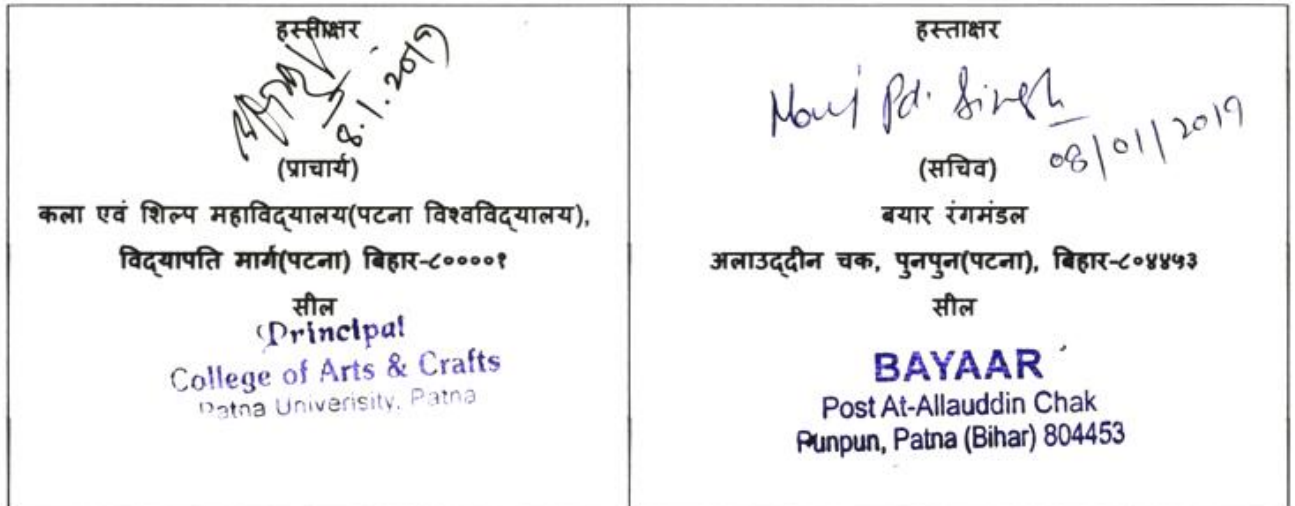 हस्ताक्षर
8.1.2019
(प्राचार्य)
कला एवं शिल्प महाविद्यालय(पटना विश्वविद्यालय),
विद्यापति मार्ग(पटना) बिहार-८००००१
सील
Principal
College of Arts & Crafts
Patna Univerisity, Patna
हस्ताक्षर
Pd. Singh
08/01/2019
(सचिव)
बयार रंगमंडल
अलाउद्दीन चक, पुनपुन(पटना), बिहार-८०४४५३
सील
BAYAAR
Post At-Allauddin Chak
Punpun, Patna (Bihar) 804453